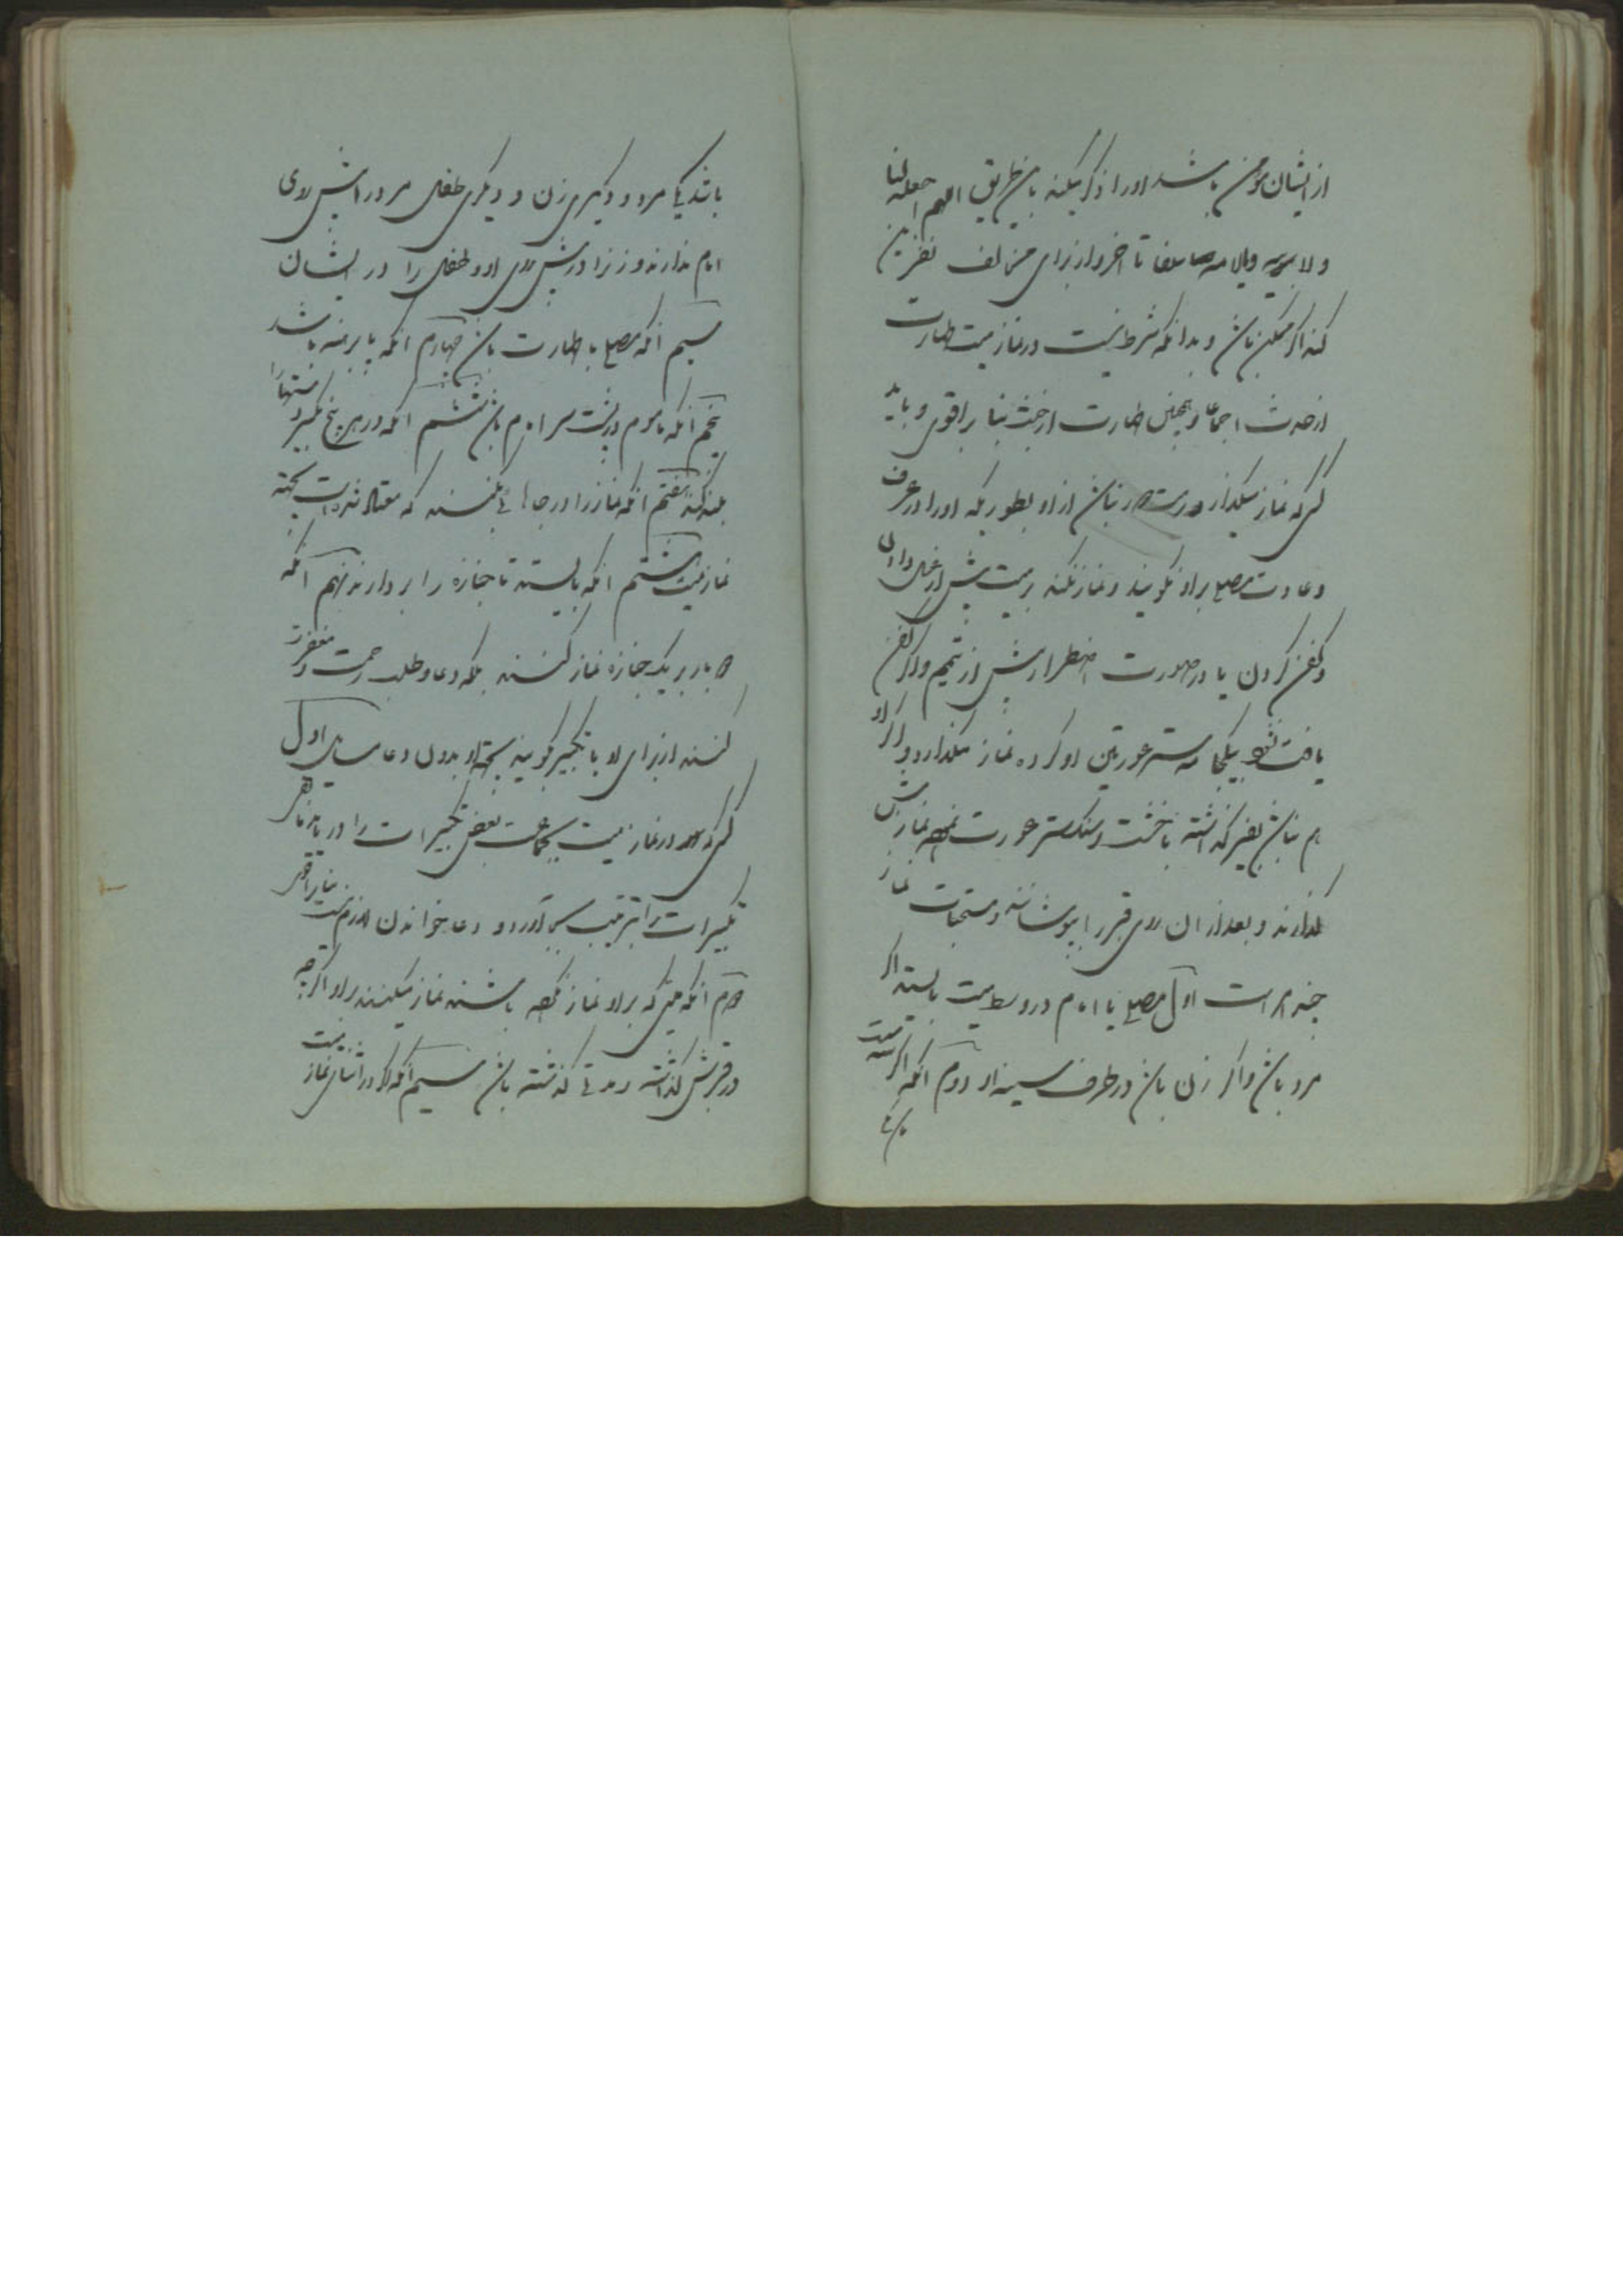 از ایشان مؤمن باشد او را ذکر میکند باین طریق اللهم اجعله لنا
ولابویه تا آخر و از برای مخالف نفرین
کند اگر ممکن باشد و بدانکه شرط نیست در نماز میت طهارت
از حدث اجماعا و همچنین طهارت از خبث بنا بر اقوی و باید
کسی که نماز میگذارد دور نباشد از او بطوریکه او را در عرف
و عادت مصلی بر او نگویند و نماز نکند بر میت پیش از غسل دادن
و کفن کردن یا در صورت اضطرار پیش از تیمم و اگر کفن
یافت نشود بیکجامه ستر عورتین او کرده نماز میگذارد و اگر او
هم نباشد بقبر گذاشته با خشت و سنگ ستر عورت نموده نمازش
گذارند و بعد از آن روی قبر را بپوشانند و مستحبات نماز
چند امر است اول مصلی یا امام در وسط میت بایستد اگر
مرد باشد و اگر زن باشد در طرف سینه او دوم آنکه اگر سه میت
باشد یکی مرد و دیگری زن و دیگری طفل مرد را پیش روی
امام گذارند و زن را در پیش روی او و طفل را در ایشان
سیم آنکه مصلی با طهارت باشد چهارم آنکه پا برهنه باشد
پنجم آنکه مأموم در پشت سر امام باشد ششم آنکه در هر پنج تکبیر دستها را
بلند کند هفتم آنکه نماز را در جاهائی بکنند که معتاد شده است بجهة
نماز میت هشتم آنکه بایستد تا جنازه را بردارند نهم آنکه
دو بار بر یک جنازه نماز نکنند بلکه دعا و طلب رحمت و مغفرت
کنند از برای او یا تکبیر گویند بجهة او بدون دعا مسایل اول
کسی که در نماز میت بجماعت بعض تکبیرات را دریابد باقی
تکبیرات را بترتیب بجا آورد و دعا خواندن لازم نیست بنا بر اقوی
دوم آنکه میتی که بر او نماز نکرده باشند نماز میکنند بر او اگرچه
در قبرش گذاشته و مدتی گذشته باشد سیم آنکه اگر در اثنای نماز میت